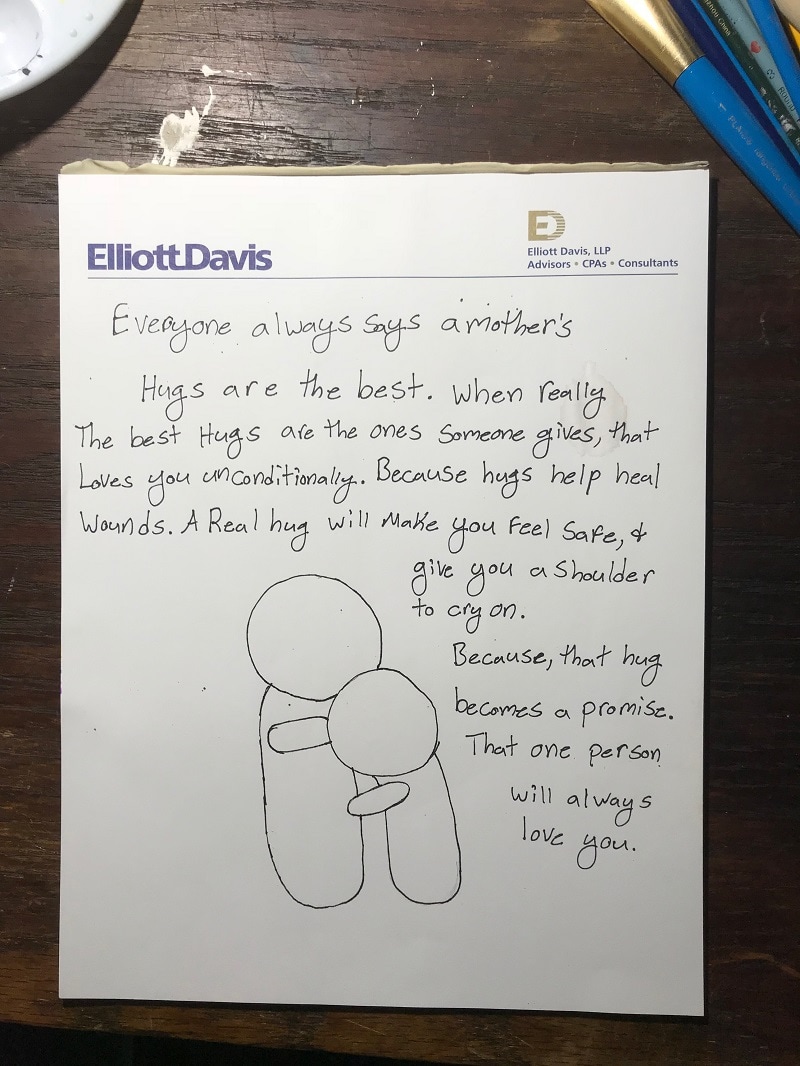 ElliottDavis
ED
Elliott Davis, LLP
Advisors • CPAs • Consultants
Everyone always says a mother's
Hugs are the best. When really
The best Hugs are the ones someone gives, that
Loves you unconditionally. Because hugs help heal
Wounds. A Real hug will Make you Feel Safe, &
give you a Shoulder
to cry on.
Because, that hug
becomes a promise.
That one person
will always
love you.